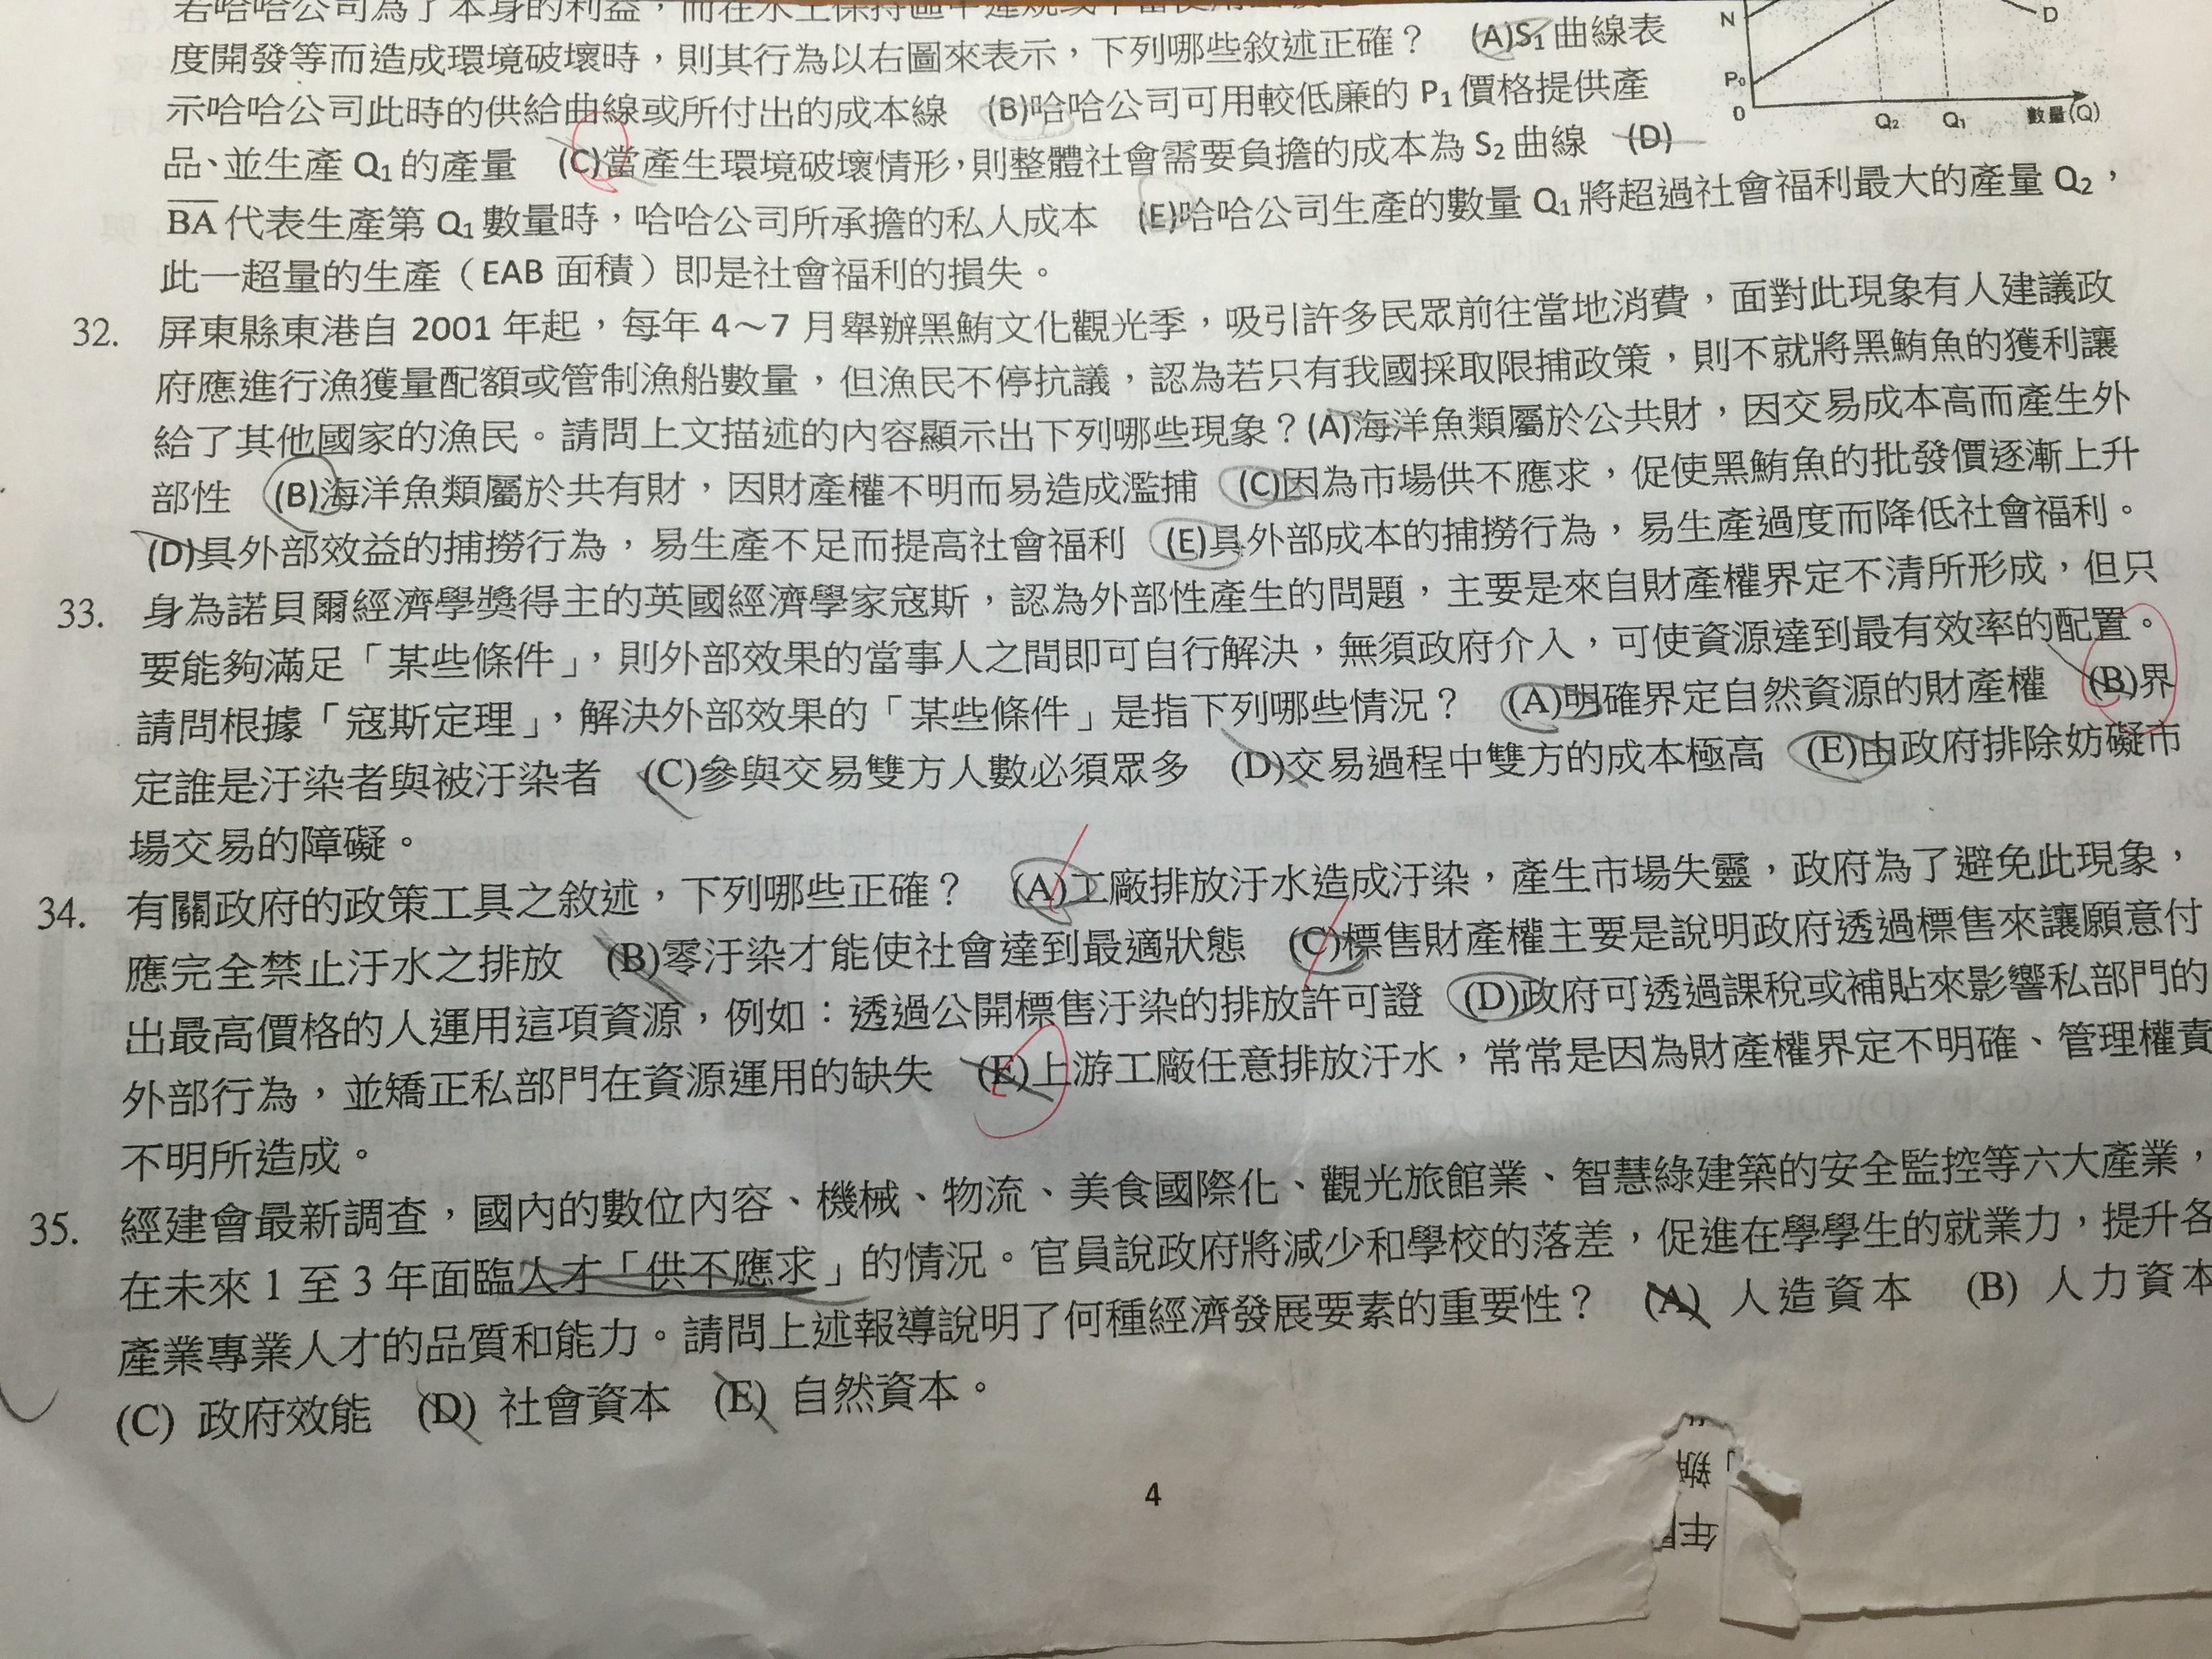 若哈哈公司為了本身的利益，而在水土保持區中違規或不當使用
度開發等而造成環境破壞時，則其行為以右圖來表示，下列哪些敘述正確？ (A)S₁曲線表
示哈哈公司此時的供給曲線或所付出的成本線 (B)哈哈公司可用較低廉的 P₁ 價格提供產
品、並生產 Q₁ 的產量 (C)當產生環境破壞情形，則整體社會需要負擔的成本為 S₂ 曲線 (D)
BA 代表生產第 Q₁ 數量時，哈哈公司所承擔的私人成本 (E)哈哈公司生產的數量 Q₁ 將超過社會福利最大的產量 Q₂，
此一超量的生產（EAB 面積）即是社會福利的損失。
N
D
P₀
0
Q₂
Q₁
數量(Q)
32. 屏東縣東港自 2001 年起，每年 4～7 月舉辦黑鮪文化觀光季，吸引許多民眾前往當地消費，面對此現象有人建議政
府應進行漁獲量配額或管制漁船數量，但漁民不停抗議，認為若只有我國採取限捕政策，則不就將黑鮪魚的獲利讓
給了其他國家的漁民。請問上文描述的內容顯示出下列哪些現象？(A)海洋魚類屬於公共財，因交易成本高而產生外
部性 (B)海洋魚類屬於共有財，因財產權不明而易造成濫捕 (C)因為市場供不應求，促使黑鮪魚的批發價逐漸上升
(D)具外部效益的捕撈行為，易生產不足而提高社會福利 (E)具外部成本的捕撈行為，易生產過度而降低社會福利。
33. 身為諾貝爾經濟學獎得主的英國經濟學家寇斯，認為外部性產生的問題，主要是來自財產權界定不清所形成，但只
要能夠滿足「某些條件」，則外部效果的當事人之間即可自行解決，無須政府介入，可使資源達到最有效率的配置。
請問根據「寇斯定理」，解決外部效果的「某些條件」是指下列哪些情況？ (A)明確界定自然資源的財產權 (B)界
定誰是汙染者與被汙染者 (C)參與交易雙方人數必須眾多 (D)交易過程中雙方的成本極高 (E)由政府排除妨礙市
場交易的障礙。
34. 有關政府的政策工具之敘述，下列哪些正確？ (A)工廠排放汙水造成汙染，產生市場失靈，政府為了避免此現象，
應完全禁止汙水之排放 (B)零汙染才能使社會達到最適狀態 (C)標售財產權主要是說明政府透過標售來讓願意付
出最高價格的人運用這項資源，例如：透過公開標售汙染的排放許可證 (D)政府可透過課稅或補貼來影響私部門的
外部行為，並矯正私部門在資源運用的缺失 (E)上游工廠任意排放汙水，常常是因為財產權界定不明確、管理權責
不明所造成。
35. 經建會最新調查，國內的數位內容、機械、物流、美食國際化、觀光旅館業、智慧綠建築的安全監控等六大產業，
在未來 1 至 3 年面臨人才「供不應求」的情況。官員說政府將減少和學校的落差，促進在學學生的就業力，提升各
產業專業人才的品質和能力。請問上述報導說明了何種經濟發展要素的重要性？ (A) 人造資本 (B) 人力資本
(C) 政府效能 (D) 社會資本 (E) 自然資本。
4